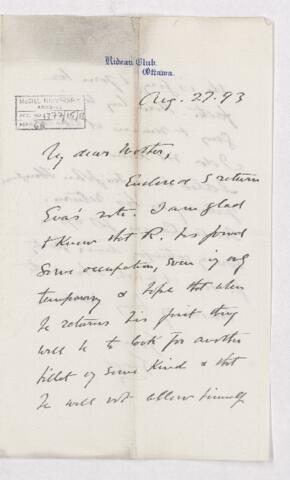 Rideau Club,
Ottawa.
McGILL UNIVERSITY
ARCHIVES
ACC. NO.
REF.
Aug. 27. 93
My dear Mother,
Enclosed I return
Eva's note. I am glad
to know that R. has found
some occupation, even if only
temporary & hope that when
he returns his first thing
will be to look for another
billet of some kind & that
he will not allow himself